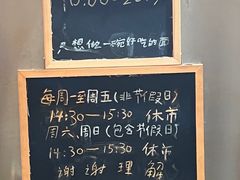 10:00-20:
只想做一碗好吃的面
每周一至周五(非节假日)
14:30—15:30 休市
周六、周日(包含节假日)
14:30—15:30 休市
谢谢理解